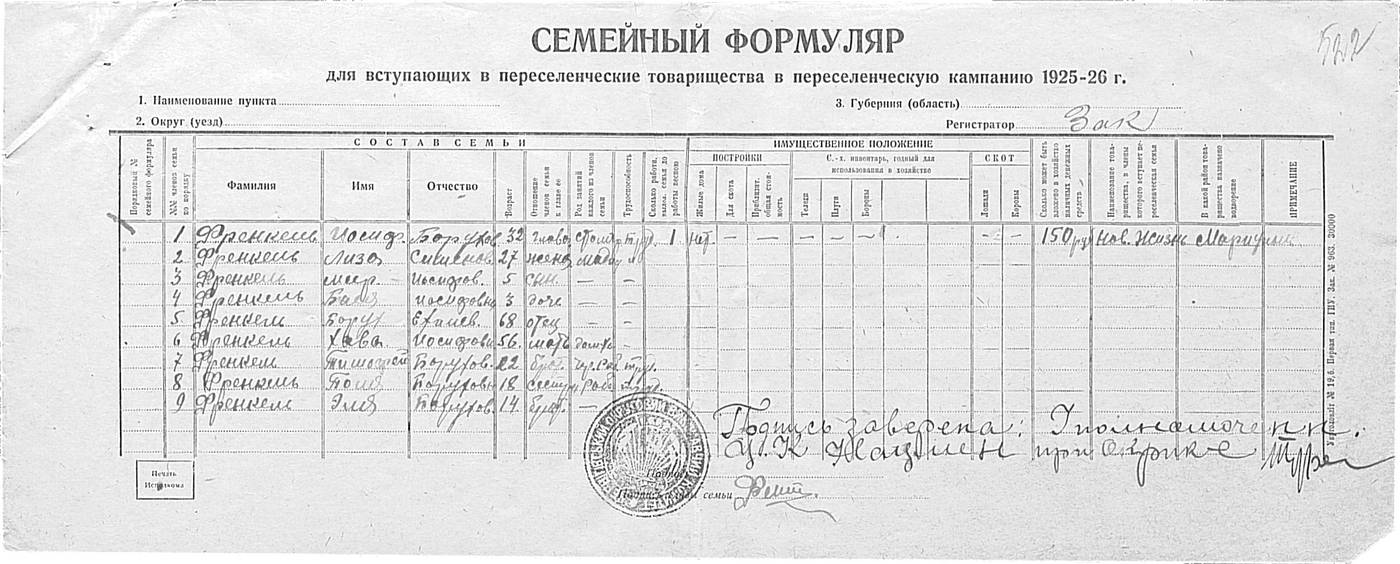 522
СЕМЕЙНЫЙ ФОРМУЛЯР
для вступающих в переселенческие товарищества в переселенческую кампанию 1925-26 г.
1. Наименование пункта 3. Губерния (область)
2. Округ (уезд) Регистратор Зак
СОСТАВ СЕМЬИ ИМУЩЕСТВЕННОЕ ПОЛОЖЕНИЕ
ПОСТРОЙКИ С.-х. инвентарь, годный для использования в хозяйстве СКОТ
Порядковый № семейного формуляра №№ членов семьи по порядку Фамилия Имя Отчество Возраст Отношение членов семьи к главе ее Род занятий каждого из членов семьи Трудоспособность Сколько работн. выдел. семья до работы весною Жилые дома Для скота Приблизит. общая стоимость Телеги Плуги Бороны Лошади Коровы Сколько может быть вложено в хозяйство наличных денежных средств Наименование товарищества, в члены которого вступает переселенческая семья В какой район товарищества назначено водворение ПРИМЕЧАНИЕ
1 Френкель Иосиф Борухов 32 глава труд. 1 нет. — — — — — — — 150 руб Нов. Жизнь Мариуполь
2 Френкель Лиза 27 жена
3 Френкель Меер — Иосифов. 5 сын. — —
4 Френкель Бася Иосифовна 3 дочь — —
5 Френкель Борух 68 отец — —
6 Френкель Хава Иосифовна 56. мать —
7 Френкель Тимофей Борухов. 22 брат. труд.
8 Френкель Поля Боруховн 18 сестра труд.
9 Френкель Эля Борухов. 14. брат. —
Подпись заверена:
Ц.К Нацмен при
Печать Исполкома
Подпись главы семьи
Укрглавлит № 19,6. Первая тип. ГПУ. Зак. № 963. 20000